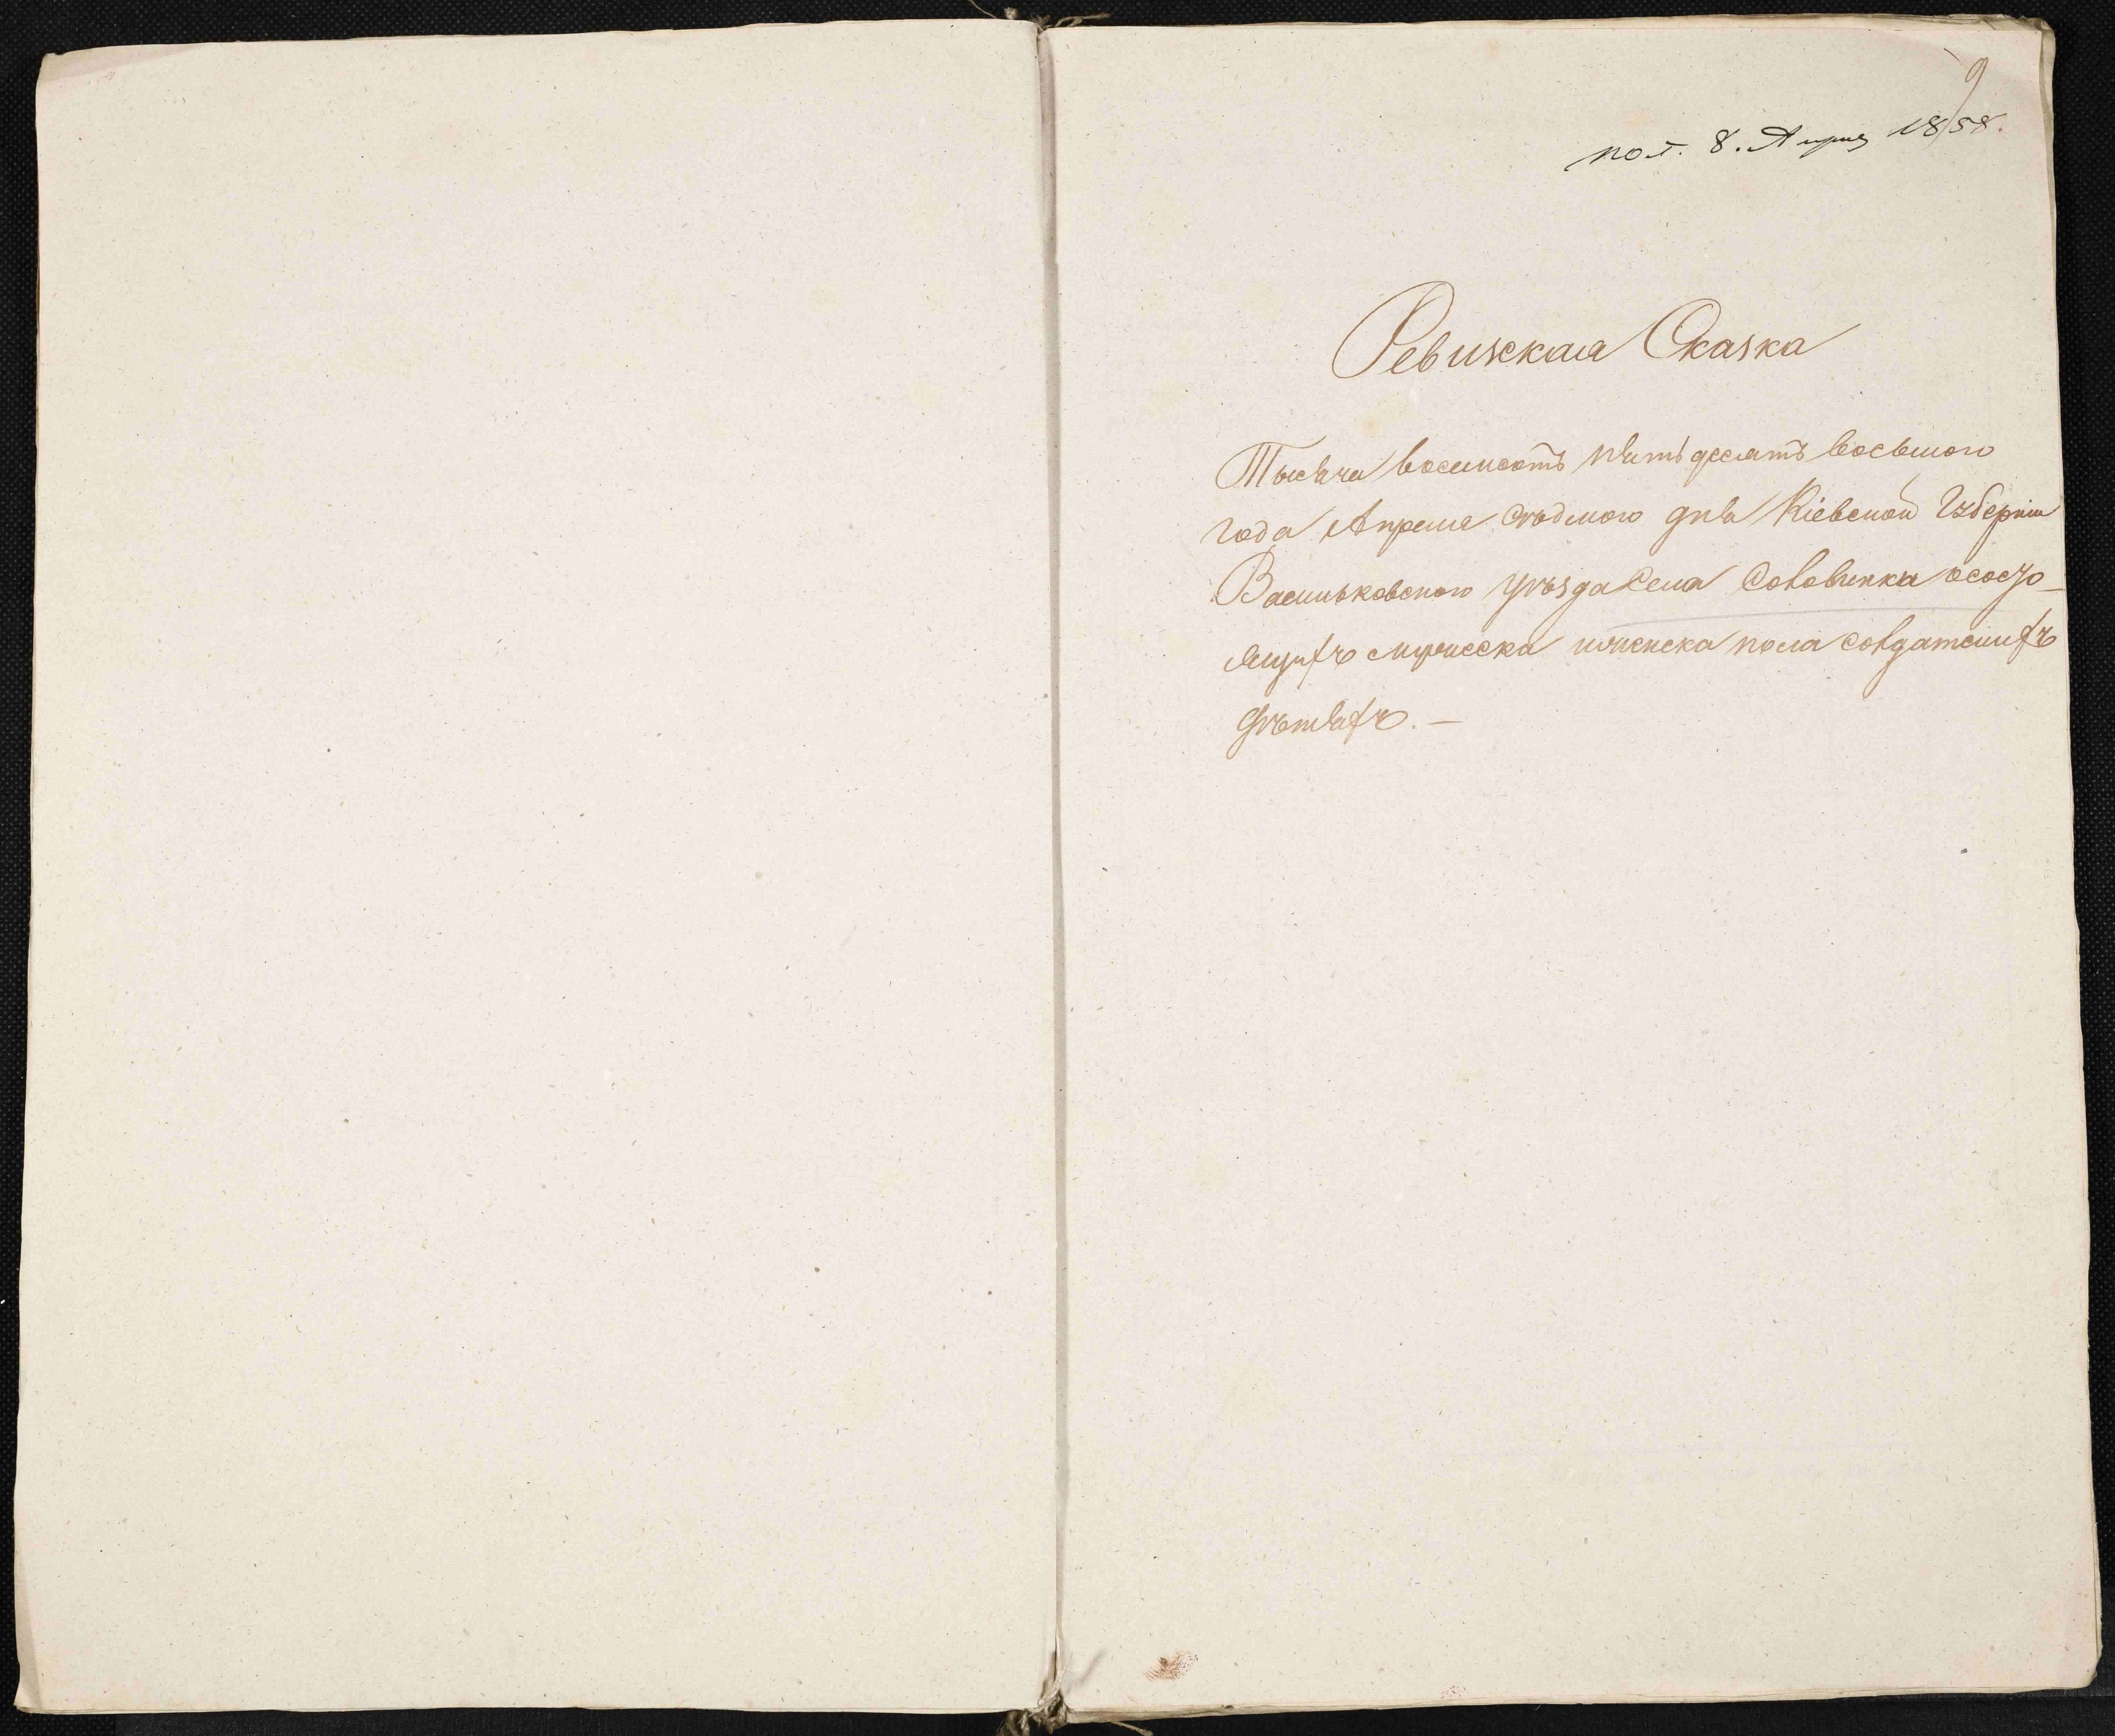 9
пол. 8. Апрля 1858.
Ревижская Сказка
Тысяча восемсотъ пятьдесятъ восьмого
года Апреля седьмого дня Кіевской Губерніи
Васильковского уѣзда села Соловіевка ососто
ящихъ мужеска иженска пола солдатскихъ
дѣтяхъ. —